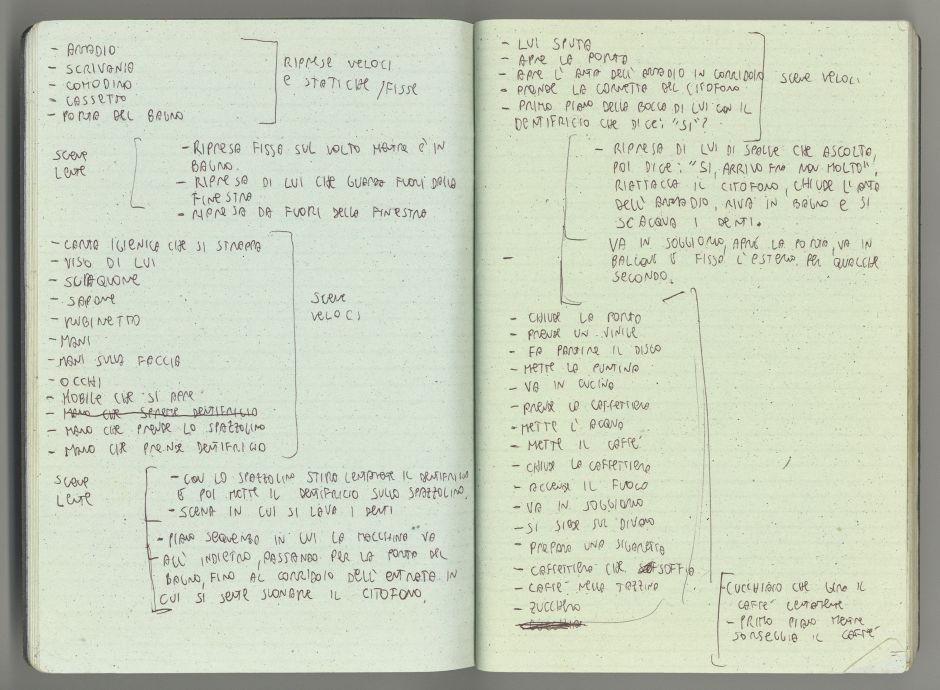 - ARMADIO
- SCRIVANIA
- COMODINO
- CASSETTO
- PORTA DEL BAGNO
RIPRESE VELOCI
E STATICHE / FISSE
SCENE
LENTE
- RIPRESA FISSA SUL VOLTO MENTRE È IN
BAGNO.
- RIPRESA DI LUI CHE GUARDA FUORI DALLA
FINESTRA
- RIPRESA DA FUORI DELLA FINESTRA
- CARTA IGIENICA CHE SI STRAPPA
- VISO DI LUI
- SCIACQUONE
- SAPONE
- RUBINETTO
- MANI
- MANI SULLA FACCIA
- OCCHI
- MOBILE CHE SI APRE
- MANO CHE SPREME DENTIFRICIO
- MANO CHE PRENDE LO SPAZZOLINO
- MANO CHE PRENDE DENTIFRICIO
SCENE
VELOCI
SCENE
LENTE
- CON LO SPAZZOLINO STIRA LENTAMENTE IL DENTIFRICIO
E POI METTE IL DENTIFRICIO SULLO SPAZZOLINO.
- SCENA IN CUI SI LAVA I DENTI
- PIANO SEQUENZA IN CUI LA MACCHINA VA
ALL' INDIETRO, PASSANDO PER LA PORTA DEL
BAGNO, FINO AL CORRIDOIO DELL' ENTRATA IN
CUI SI SENTE SUONARE IL CITOFONO.
- LUI SPUTA
- APRE LA PORTA
- APRE L' ANTA DELL' ARMADIO IN CORRIDOIO
- PRENDE LA CORNETTA DEL CITOFONO
- PRIMO PIANO DELLA BOCCA DI LUI CON IL
DENTIFRICIO CHE DICE: "SI"?
SCENE VELOCI
- RIPRESA DI LUI DI SPALLE CHE ASCOLTA,
POI DICE: "SI, ARRIVO FRA NON MOLTO",
RIATTACCA IL CITOFONO, CHIUDE L'ANTA
DELL' ARMADIO, RIVA IN BAGNO E SI
SCIACQUA I DENTI.
VA IN SOGGIORNO, APRE LA PORTA, VA IN
BALCONE E FISSA L'ESTERNO PER QUALCHE
SECONDO.
- CHIUDE LA PORTA
- PRENDE UN VINILE
- FA PARTIRE IL DISCO
- METTE LA PUNTINA
- VA IN CUCINA
- PRENDE LA CAFFETTIERA
- METTE L' ACQUA
- METTE IL CAFFÈ
- CHIUDE LA CAFFETTIERA
- ACCENDE IL FUOCO
- VA IN SOGGIORNO
- SI SIEDE SUL DIVANO
- PREPARA UNA SIGARETTA
- CAFFETTIERA CHE SOFFIA
- CAFFÈ NELLA TAZZINA
- ZUCCHERO
- CUCCHIAIO CHE GIRA IL
CAFFÈ LENTAMENTE
- PRIMO PIANO MENTRE
SORSEGGIA IL CAFFÈ